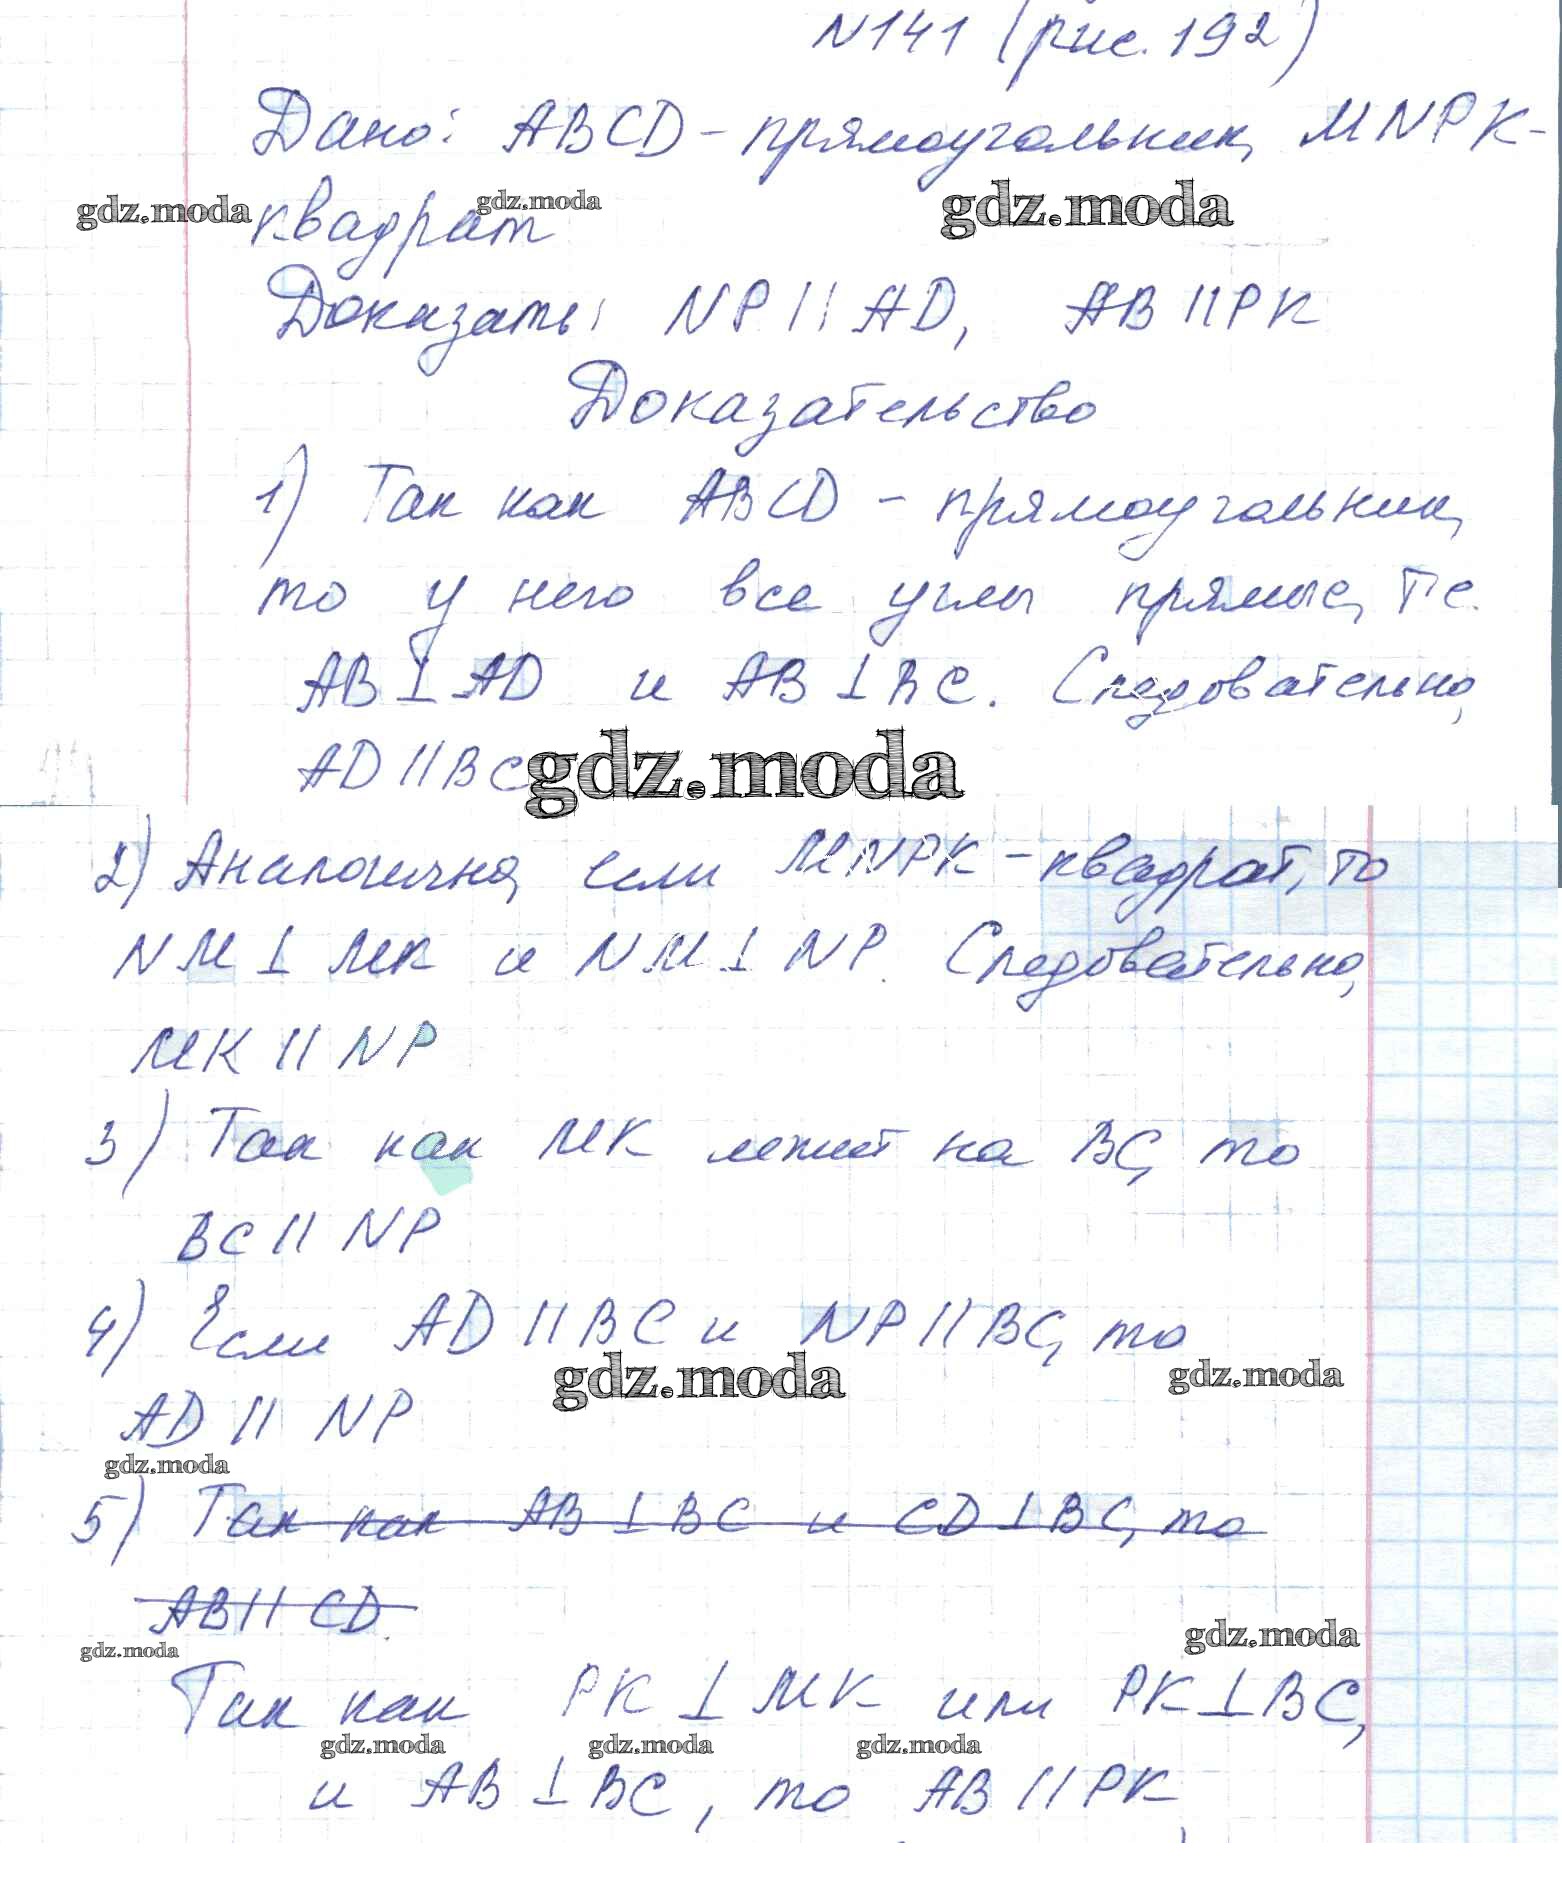 N141 (рис. 192)
Дано: ABCD - прямоугольник, MNPK -
gdz.moda квадрат gdz.moda gdz.moda
Доказать: NP || AD, AB || PK
Доказательство
1) Так как ABCD - прямоугольник,
то у него все углы прямые, т.е.
AB ⊥ AD и AB ⊥ BC. Следовательно,
AD || BC gdz.moda
2) Аналогично, если MNPK - квадрат, то
NM ⊥ MK и NM ⊥ NP. Следовательно,
MK || NP
3) Так как MK лежит на BC, то
BC || NP
4) Если AD || BC и NP || BC, то
gdz.moda gdz.moda
AD || NP
gdz.moda
5) Так как AB ⊥ BC и CD ⊥ BC, то
AB || CD.
gdz.moda gdz.moda
Так как PK ⊥ MK или PK ⊥ BC,
gdz.moda gdz.moda gdz.moda
и AB ⊥ BC, то AB || PK